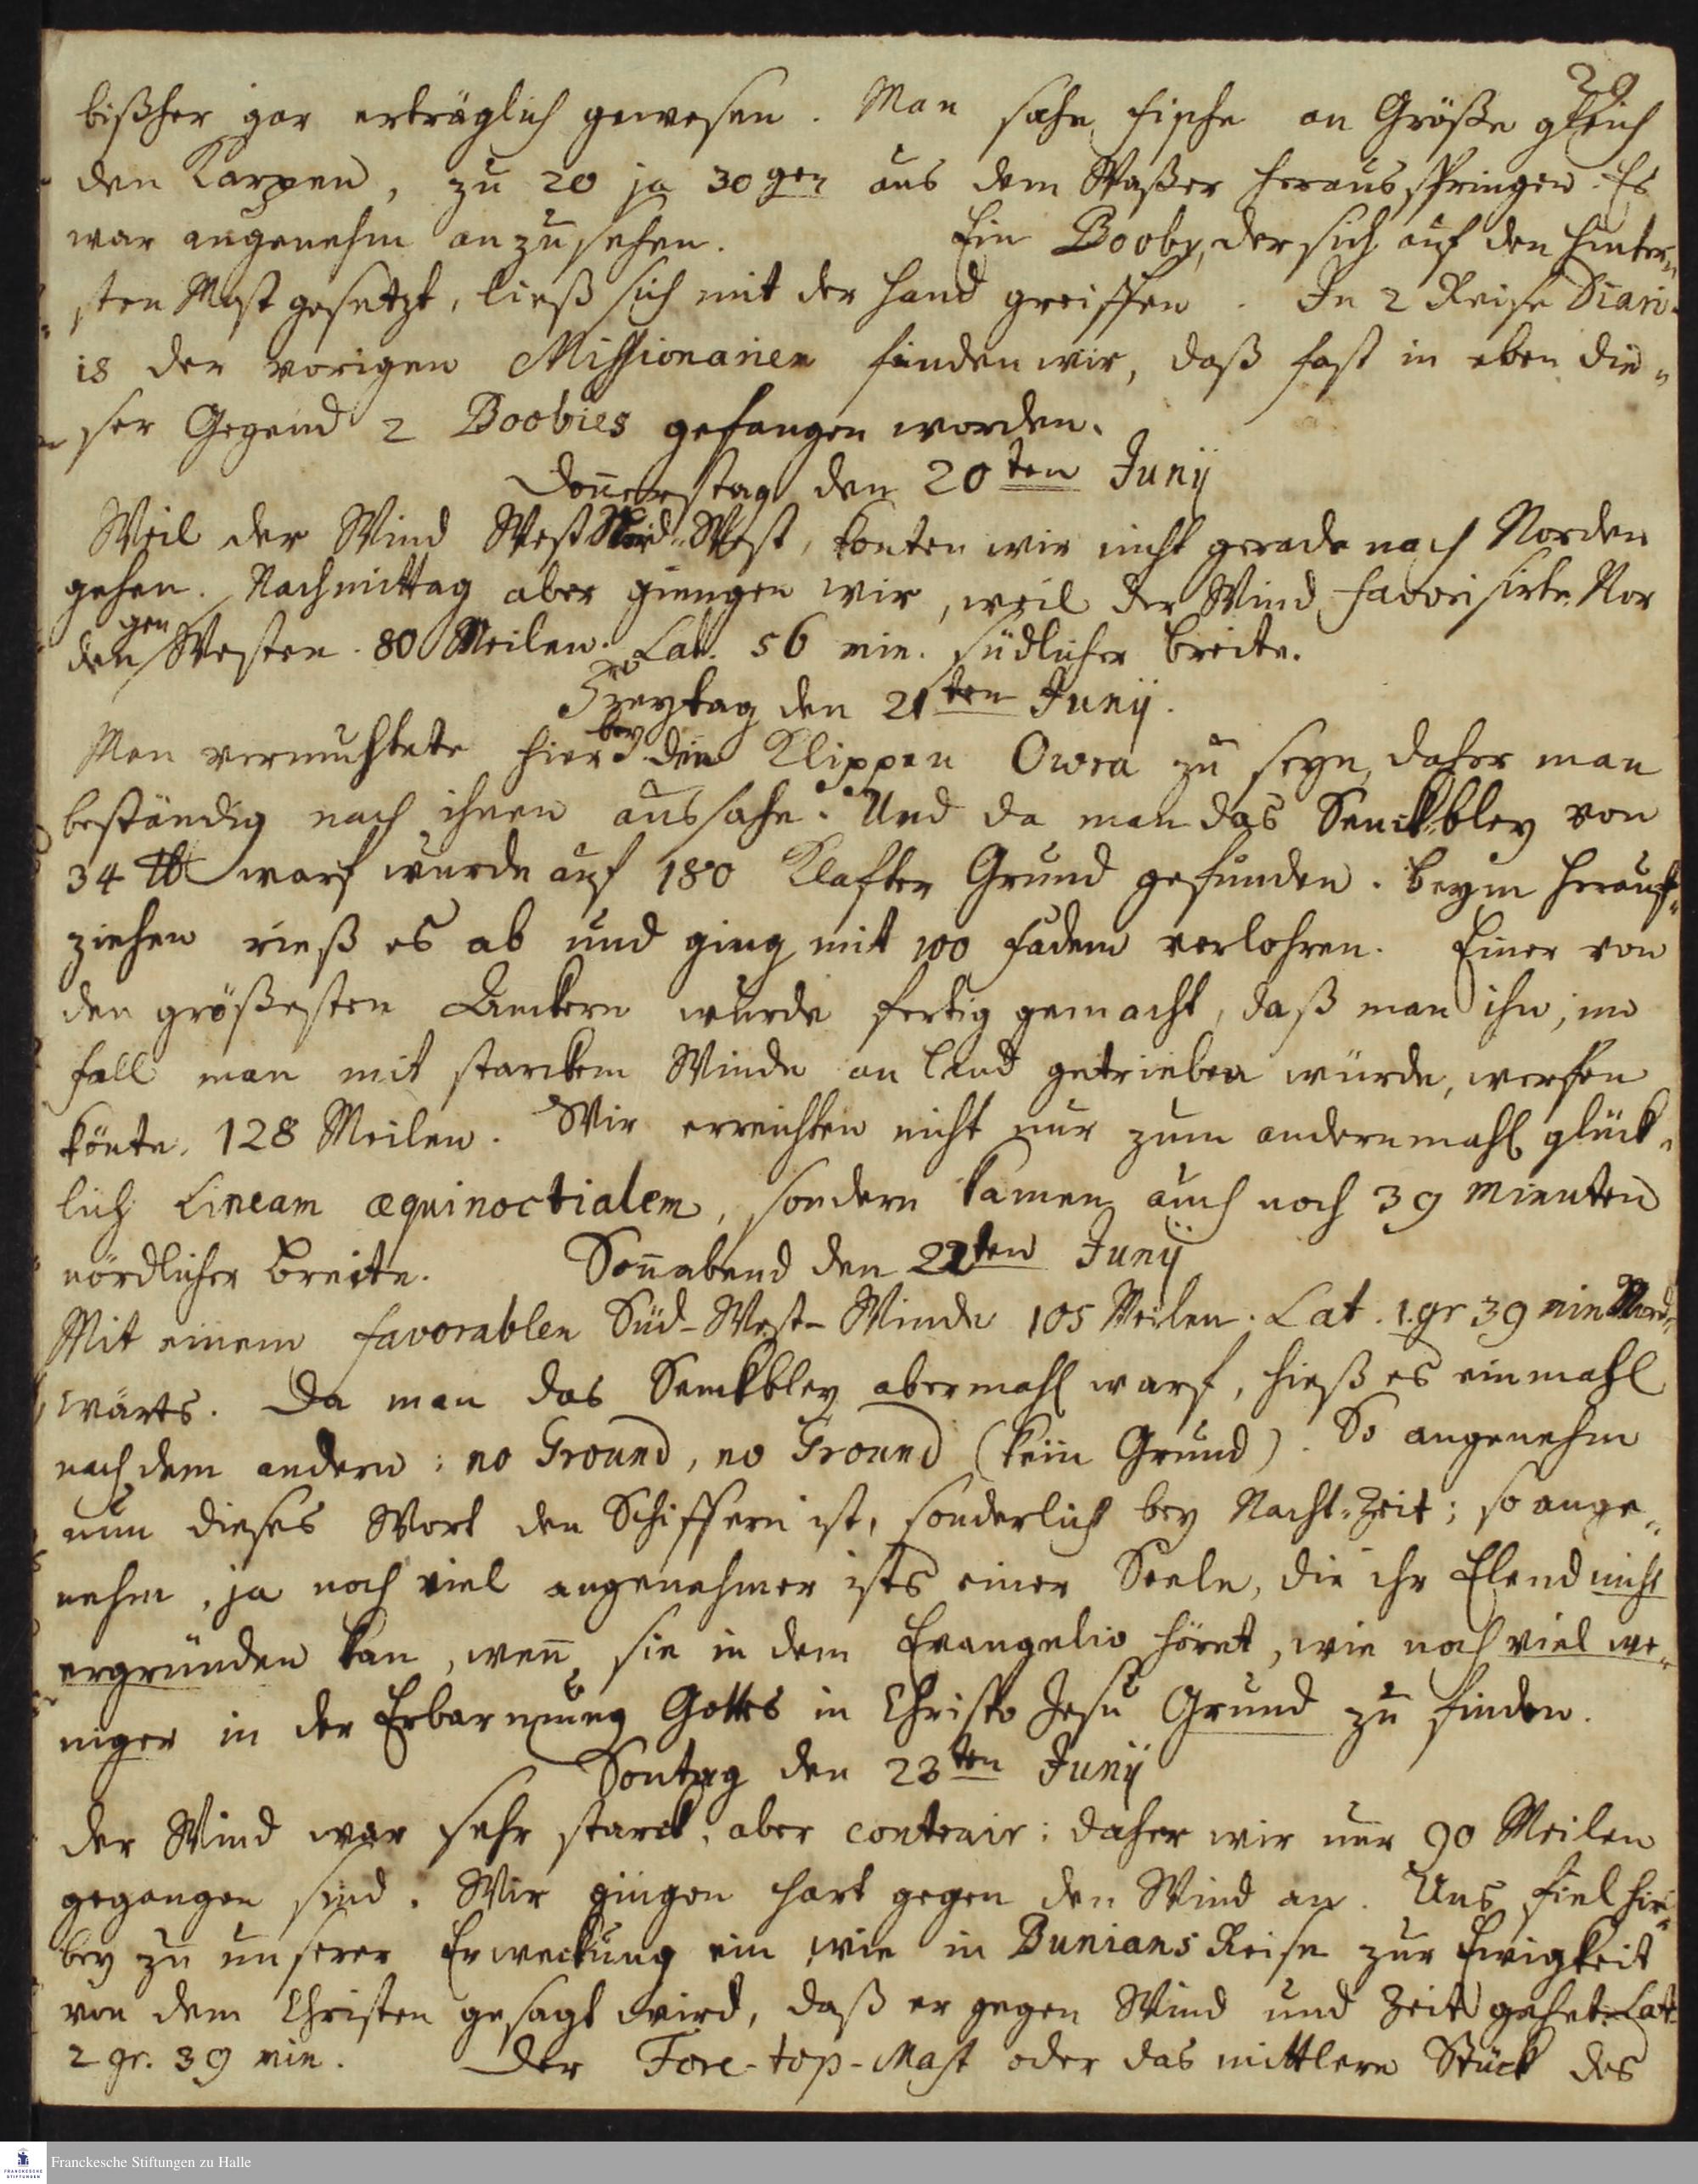 29
bißher gar erträglich gewesen. Man sahe Fische an Größe gleich
den Karpen, zu 20 ja 30gen aus dem Waßer heraus springen. Es
war angenehm anzusehen. Ein Booby, der sich auf den hinter„
sten Mast gesetzt, ließ sich mit der Hand greiffen. In 2 Reise Diari„
is der vorigen Missionarien finden wir, daß fast in eben die„
ser Gegend 2 Boobies gefangen worden.
Don̄erstag den 20ten Junij
Weil der Wind West Nord-West, konten wir nicht gerade nach Norden
gehen. Nachmittag aber giengen wir, weil der Wind favorisirte, Nor
den gen Westen. 80 Meilen. Lat. 56 min. südlicher Breite.
Freytag den 21ten Junij.
Man vermuhtete hier bey die Klippen Owra zu seyn, daher man
beständig nach ihnen aussahe. Und da man das Senckbley von
34 ℔ warf wurde auf 180 Klafter Grund gefunden. Beym herauf„
ziehen rieß es ab und ging mit 100 Faden verlohren. Einer von
den größesten Anckern wurde fertig gemacht, daß man ihn, im
Fall man mit starckem Winde an Land getrieben würde, werfen
könte. 128 Meilen. Wir erreichten nicht nur zum andernmahl glück„
lich Lineam æquinoctialem, sondern kamen auch noch 39 Minuten
nördlicher Breite. Son̄abend den 22ten Junij
Mit einem favorablen Süd-West-Winde 105 Meilen. Lat. 1.gr 39 min Nord„
wärts. Da man das Senckbley abermahl warf, hieß es einmahl
nach dem andern: no Ground, no Ground (kein Grund). So angenehm
nun dieses Wort den Schiffern ist, sonderlich bey Nacht-Zeit; so ange„
nehm, ja noch viel angenehmer ists einer Seele, die ihr Elend nicht
ergründen kan, wen̄ sie in dem Evangelio höret, wie noch viel we„
niger in der Erbarmung Gottes in Christo Jesu Grund zu finden.
Sontag den 23ten Junij
Der Wind war sehr starck, aber contrair: daher wir nur 90 Meilen
gegangen sind. Wir gingen hart gegen den Wind an. Uns fiel hie„
bey zu unserer Erweckung ein, wie in Bunians Reise zur Ewigkeit
von dem Christen gesagt wird, daß er gegen Wind und Zeit gehet. Lat.
2 gr. 39 min. Der Fore-top-Mast oder das mittlere Stück des
Franckesche Stiftungen zu Halle
FRANCKESCHE STIFTUNGEN